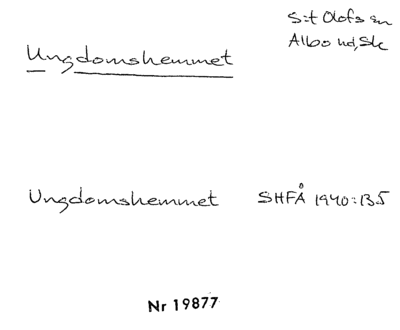 S:t Olofs sn
Albo hd, Sk
Ungdomshemmet
Ungdomshemmet SHFÅ 1940:135
Nr 19877